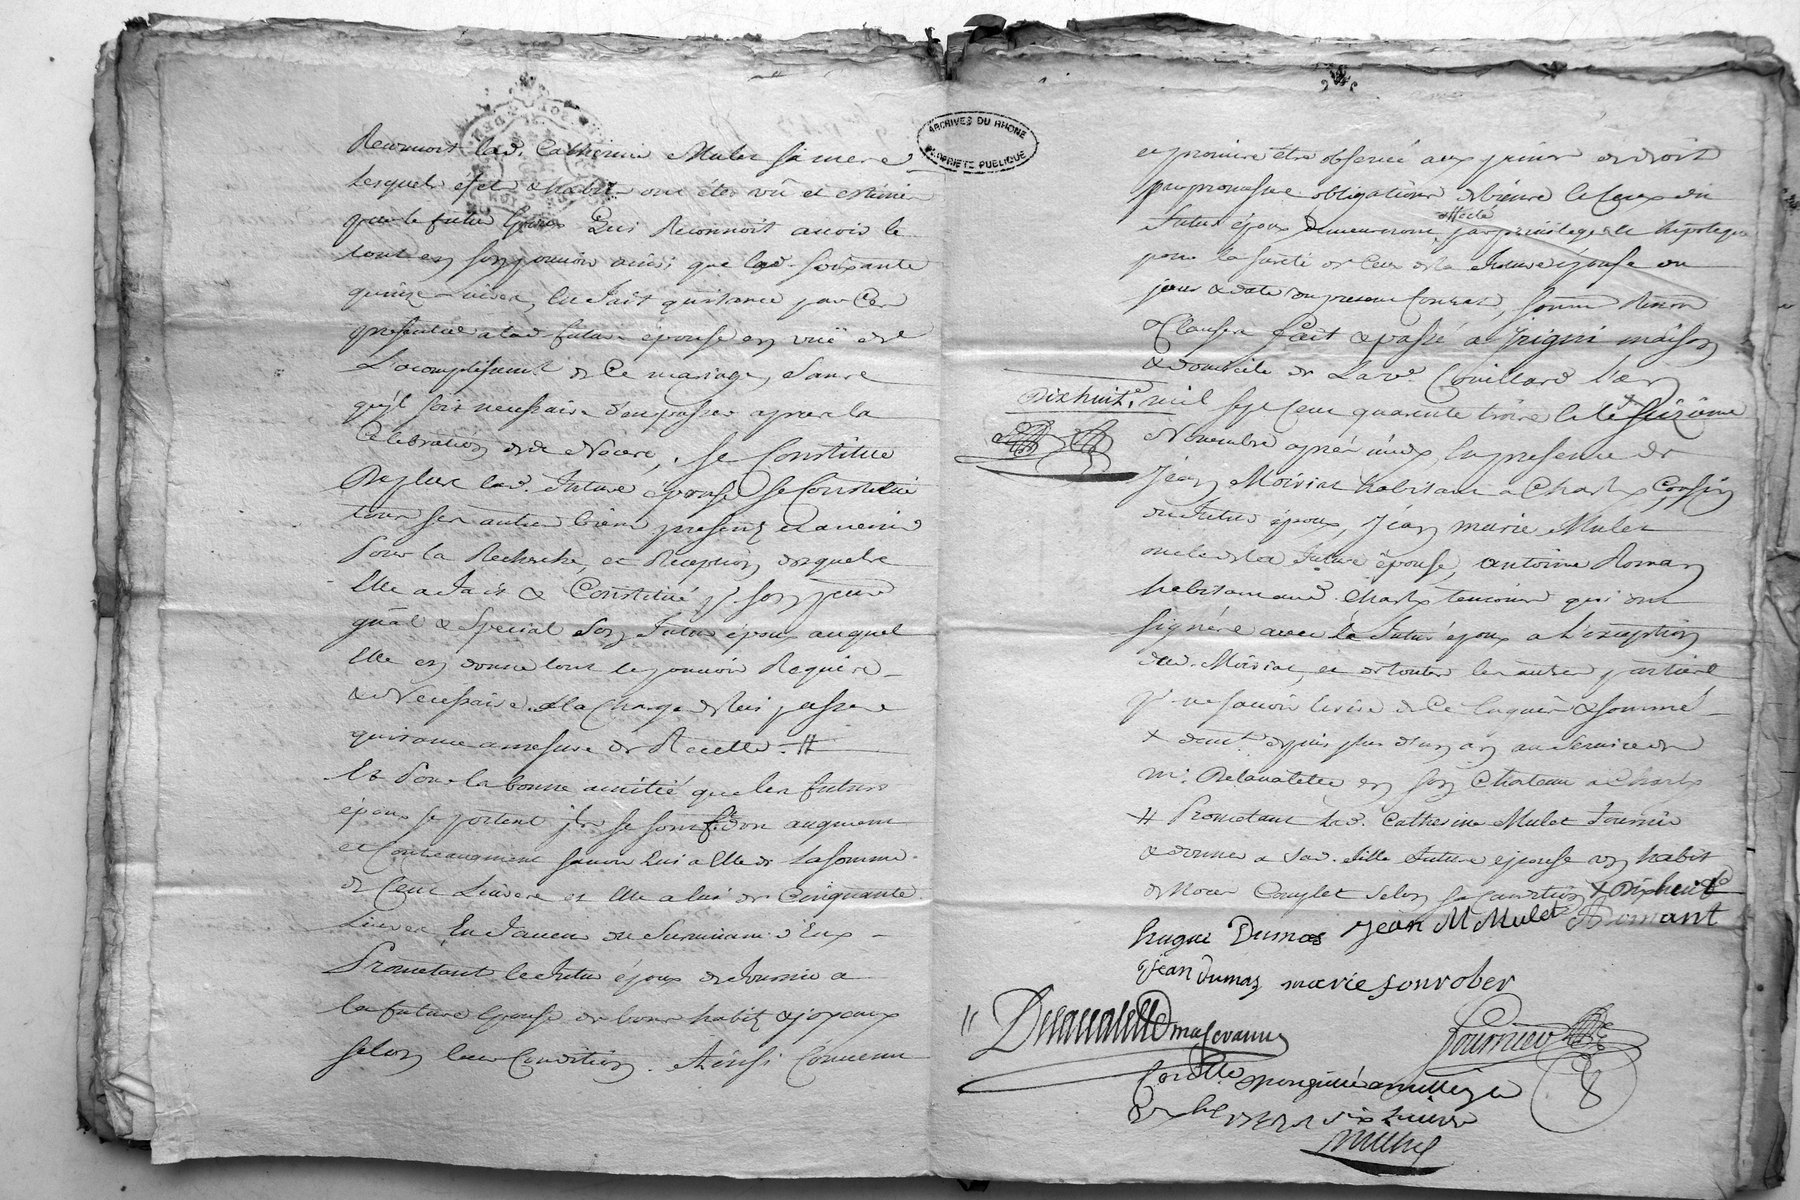 ARCHIVES DU RHONE
PROPRIETE PUBLIQUE
Catherine Mulet sa mere
Lesquels éfets & habits ont étés vû et estimés
par le futur époux Qui Reconnoit avoir le
tout en son pouvoir ainsi que lad. soixante
quinze livres, En fait quittance par Ces
presentes a lad. future épouse en vuë de
L'acomplissement de Ce mariage, sans
qu'il soit necessaire d'en passer apres la
Celebration de Noces, se Constitue
De plus lad. future épouse se Constitue
tous ses autres biens presents et avenir
Pour la Recherche, et Reception desquels
Elle a fait & Constitué p. son proc.
gñal & special Son futur époux auquel
Elle en donne tout le pouvoir Requis
& Necessaire a la Charge de luis passer
quitance a mesure de Recette. #
Et Pour la bonne amitié que les futurs
époux se portent ils se sont f. don augment
et Contreaugment savoir Lui a Elle de La somme
de Cent Livres et Elle a lui de Cinquante
Livres En faveur du Survivant d'Eux
Prometant le futur époux de fournir a
la future épouse de bons habits & joyeaux
selon leur Condition. Ainsi Convenu
et promis être observé aux peines de droit
par promesse obligations de biens le Ceux du
futur époux demeureront affecté par privilege & hipoteque
pour la sureté de Ceux de la future épouse du
jour & date du present Contrat,
& Clauses fait & passé a Irigni maison
& domicile de La ve. Couillard L'an
Dixhuite. mil sept Cent quarente troise le
Novembre apres midi, En presence de
Jean Moisiat habitant a Charly Cousin
du futur époux, Jean marie Mulet
oncle de la future épouse, Antoine Roman
habitant aud. Charly temoins qui ont
signéré avec le futur époux a L'exception
dud. Moisiat, et de toutes les autres parties
p. ne savoir Ecrire de Ce Enquis & sommé
+ demt. depuis plus d'un an au Service de
mr. Delavalette en son Chateau a Charly
# Prometant lad. Catherine Mulet fournir
& donner a sad. fille future épouse un habit
de Noces Complet selon sa Condition + Dixhuite
hugue Dumas Jean M Mulet A Romant
Jean Dumas marie fonrober
Fournier
Conollé
six Livres